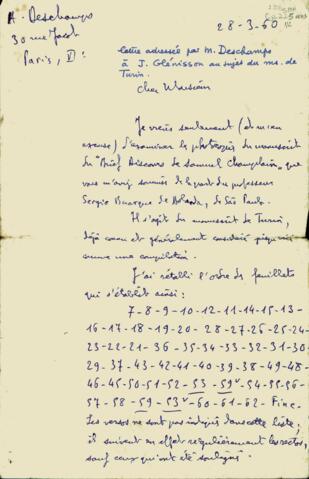 A. Deschamps
30 rue Jacob
Paris, VI:
28-3-60
lettre adressée par M. Deschamps
à J. Glénisson au sujet du ms. de
Turin.
Cher Monsieur
Je viens seulement (et m'en
excuse) d'examiner la photocopie du manuscrit
du "Brief Discours de Samuel Champlain, que
vous m'avez donnée de la part du professeur
Sergio Buarque de Holanda, de São Paulo.
Il s'agit du manuscrit de Turin,
déjà connu et généralement considéré
comme une compilation.
J'ai rétabli l'ordre des feuillets
qui s'établit ainsi:
7-8-9-10-12-11-14-15-13-
16-17-18-19-20-28-27-26-25-24-
23-22-21-36-35-34-33-32-31-30-
29-37-43-42-41-40-39-38-49-48-
46-45-50-51-52-53-59v-54-55-56-
57-58-59-53v-60-61-62-Fin.
Les versos ne sont pas indiqués dans cette liste;
ils suivent en effet régulièrement les rectos,
sauf ceux qui ont été soulignés.